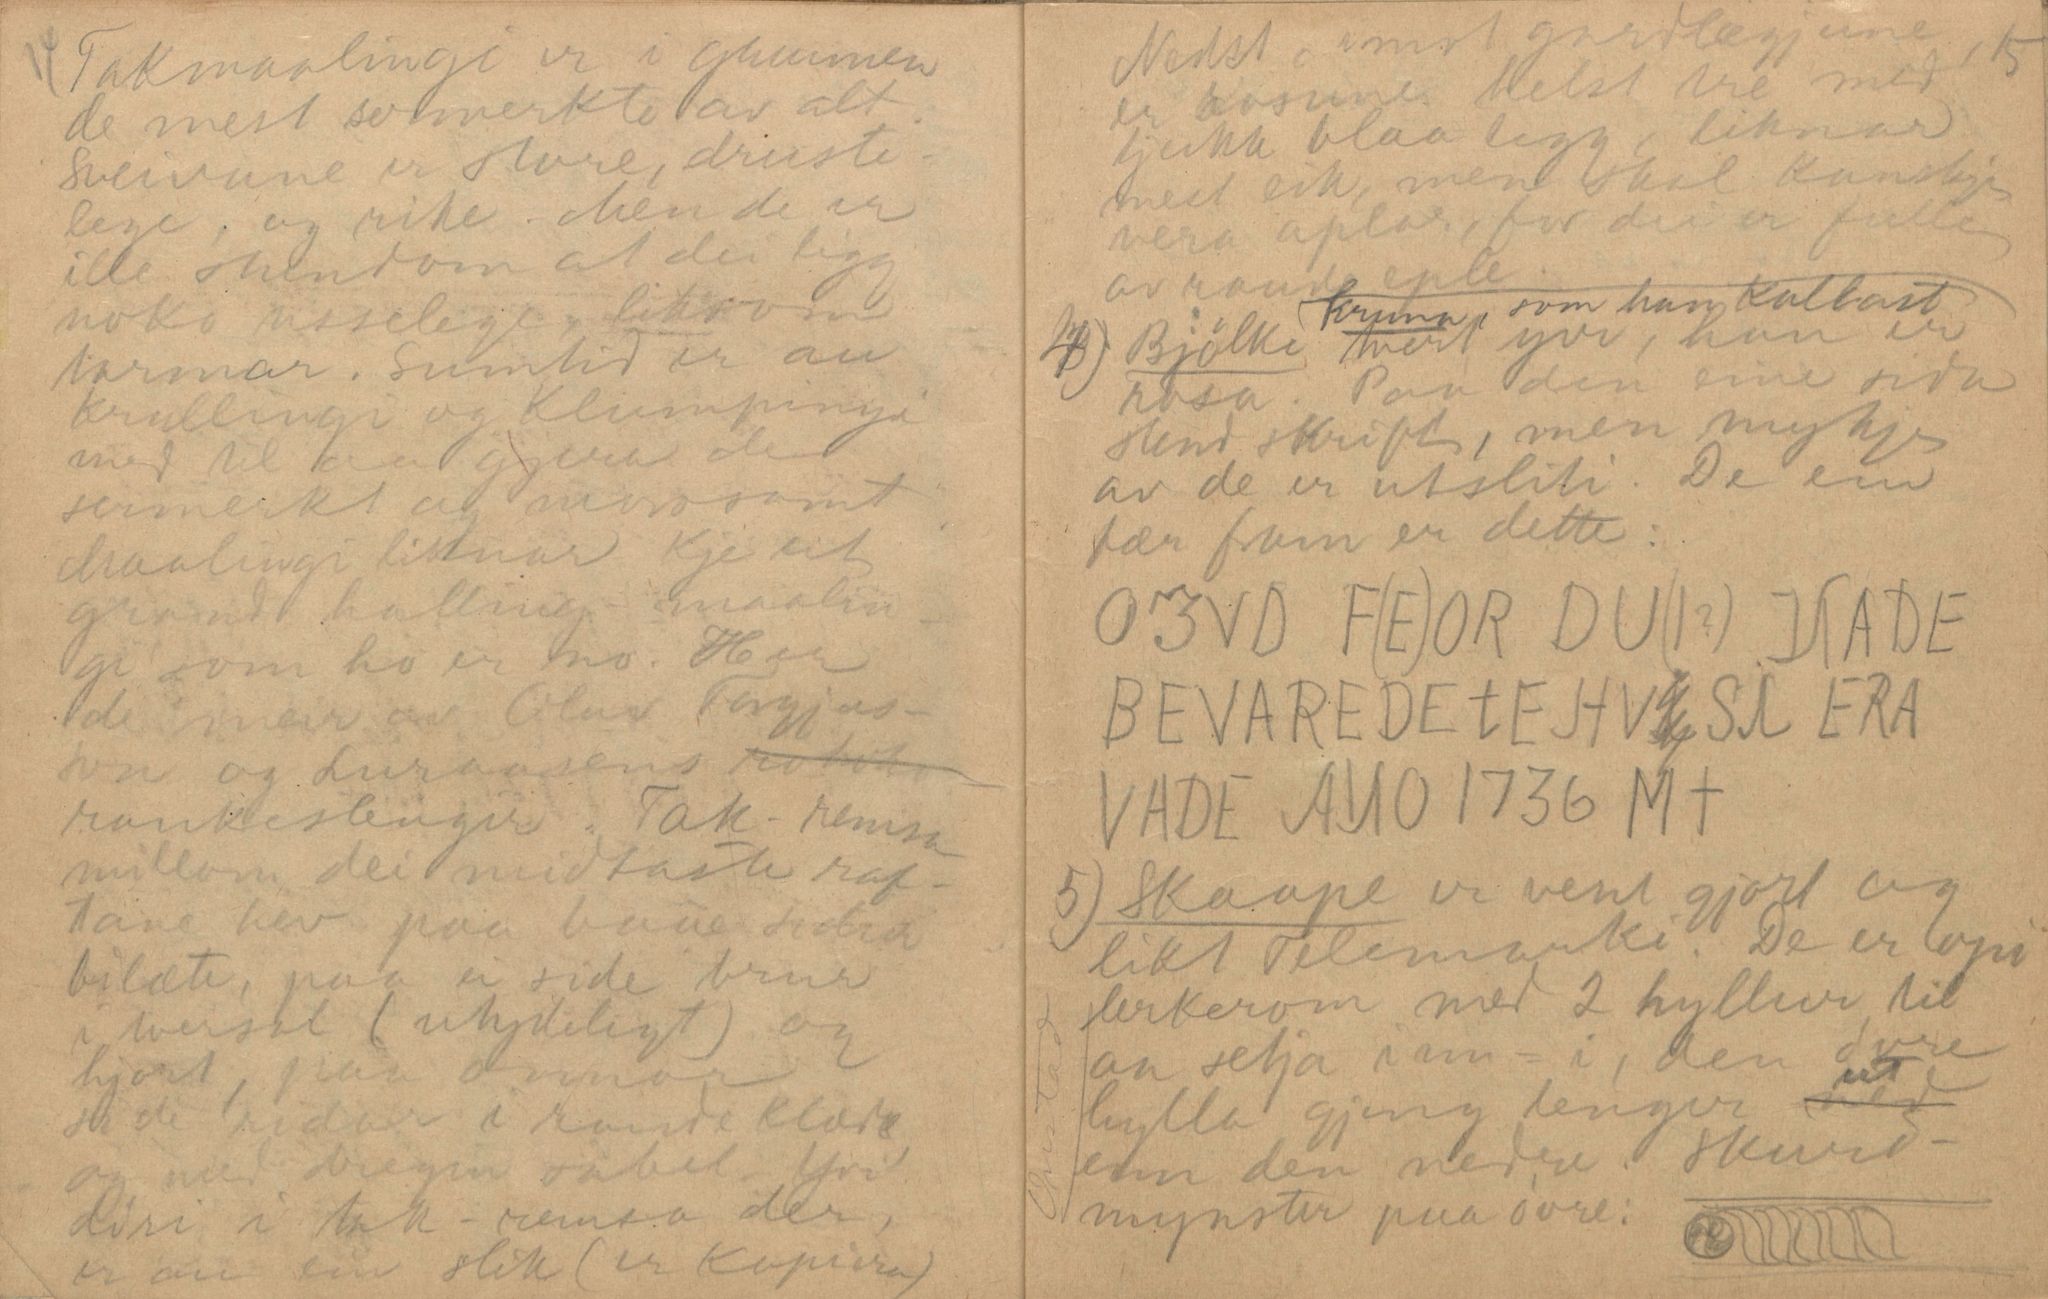 14
Takmaalingi er i grunnen
de mest sermerkte av alt.
Sveivane er store, druste-
lege, og rike. Men de er
ille stendom at dei ligg
noko usselege, likesom
tarmar. Sumtid er au
krullingi og klumpingi
med til aa gjera de
sermerkt og morosamt.
Maalingi liknar kje eit
grand halling-maalin-
gi som ho er no. Her
de meir av Olav Torgjus-
son og Luraasens
rankeslengir. Tak-remsa
millom dei midtaste raf-
tane hev paa baae sidur
bilæte, paa ei side brur
i versal (utydeligt) og
hjort, paa onnor
side ridar i raude klæde
og med dregin sabel. Yvi
døri i tak-remsa der,
er au ein slik (er kopiera)
15
Nedst imot gardlægjune
er rosune helst tre med
tjukk blaa legg, liknar
mest eik, men skal kanskje
vera aplar, for dei er fulle
av raude eple.
4) Bjölki tvert yvi, kruna, som han kallast, han er
rosa. Paa den eine sida
stend skrift, men mykje
av de er utsliti. De ein
fær fram er dette:
O3VD F(E)OR DU(I?) NADE
BEVAREDETEHVSSI ERA
VADE ANNO 1736 M†
5) Skaape er vent gjort og
likt Telemarki. De er opi
lerkerom med 2 hyllur til
aa setja inn-i, den övre
hylla gjeng lenger ned ut
enn den nedre. Skurd-
mynster paa övre: